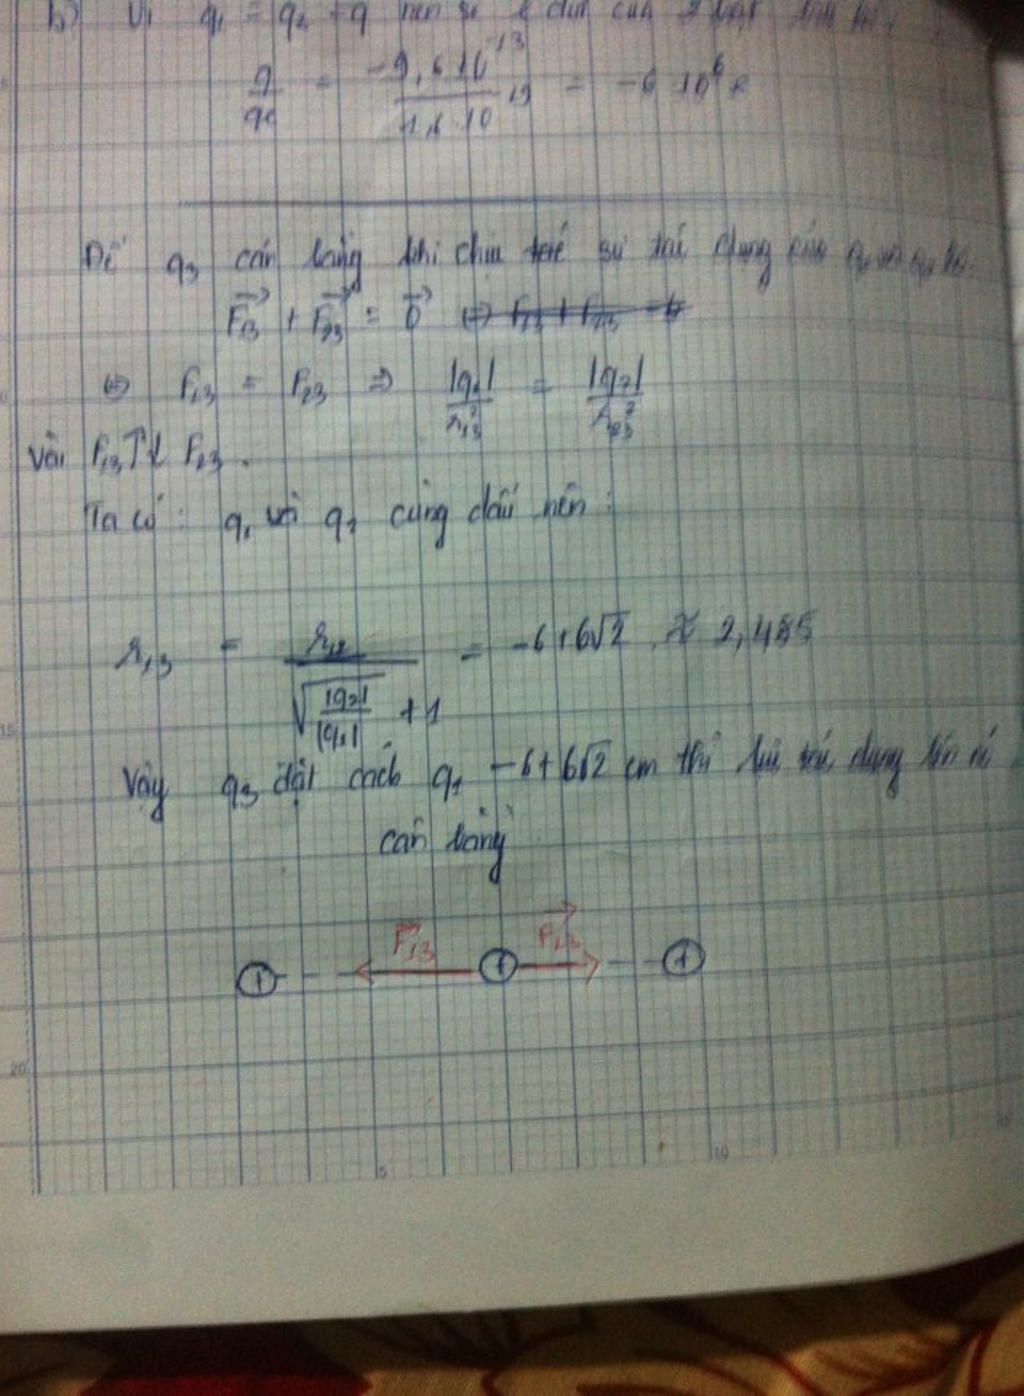 b) Vì q₁ = q₂ = q nên số e dư của 2 hạt
q/q₀ = -9,6.10⁻¹³/1,6.10⁻¹⁹ = -6.10⁶ e
Để q₃ cân bằng khi chịu sự tác dụng của q₁ và q₂ thì
F₁₃ + F₂₃ = 0 ⇔ F₁₃ + F₂₃ =
⇔ F₁₃ = F₂₃ ⇒ |q₁|/r₁₃² = |q₂|/r₂₃²
Với F₁₃ ↑↓ F₂₃.
Ta có: q₁ và q₂ cùng dấu nên:
r₁₃ = r₁₂/(√(|q₂|/|q₁|) + 1) = -6+6√2 ≈ 2,485
Vậy q₃ đặt cách q₁ -6+6√2 cm thì lực tác dụng lên nó
cân bằng
F₁₃ F₂₃
+ + +
15
20
5 10 15